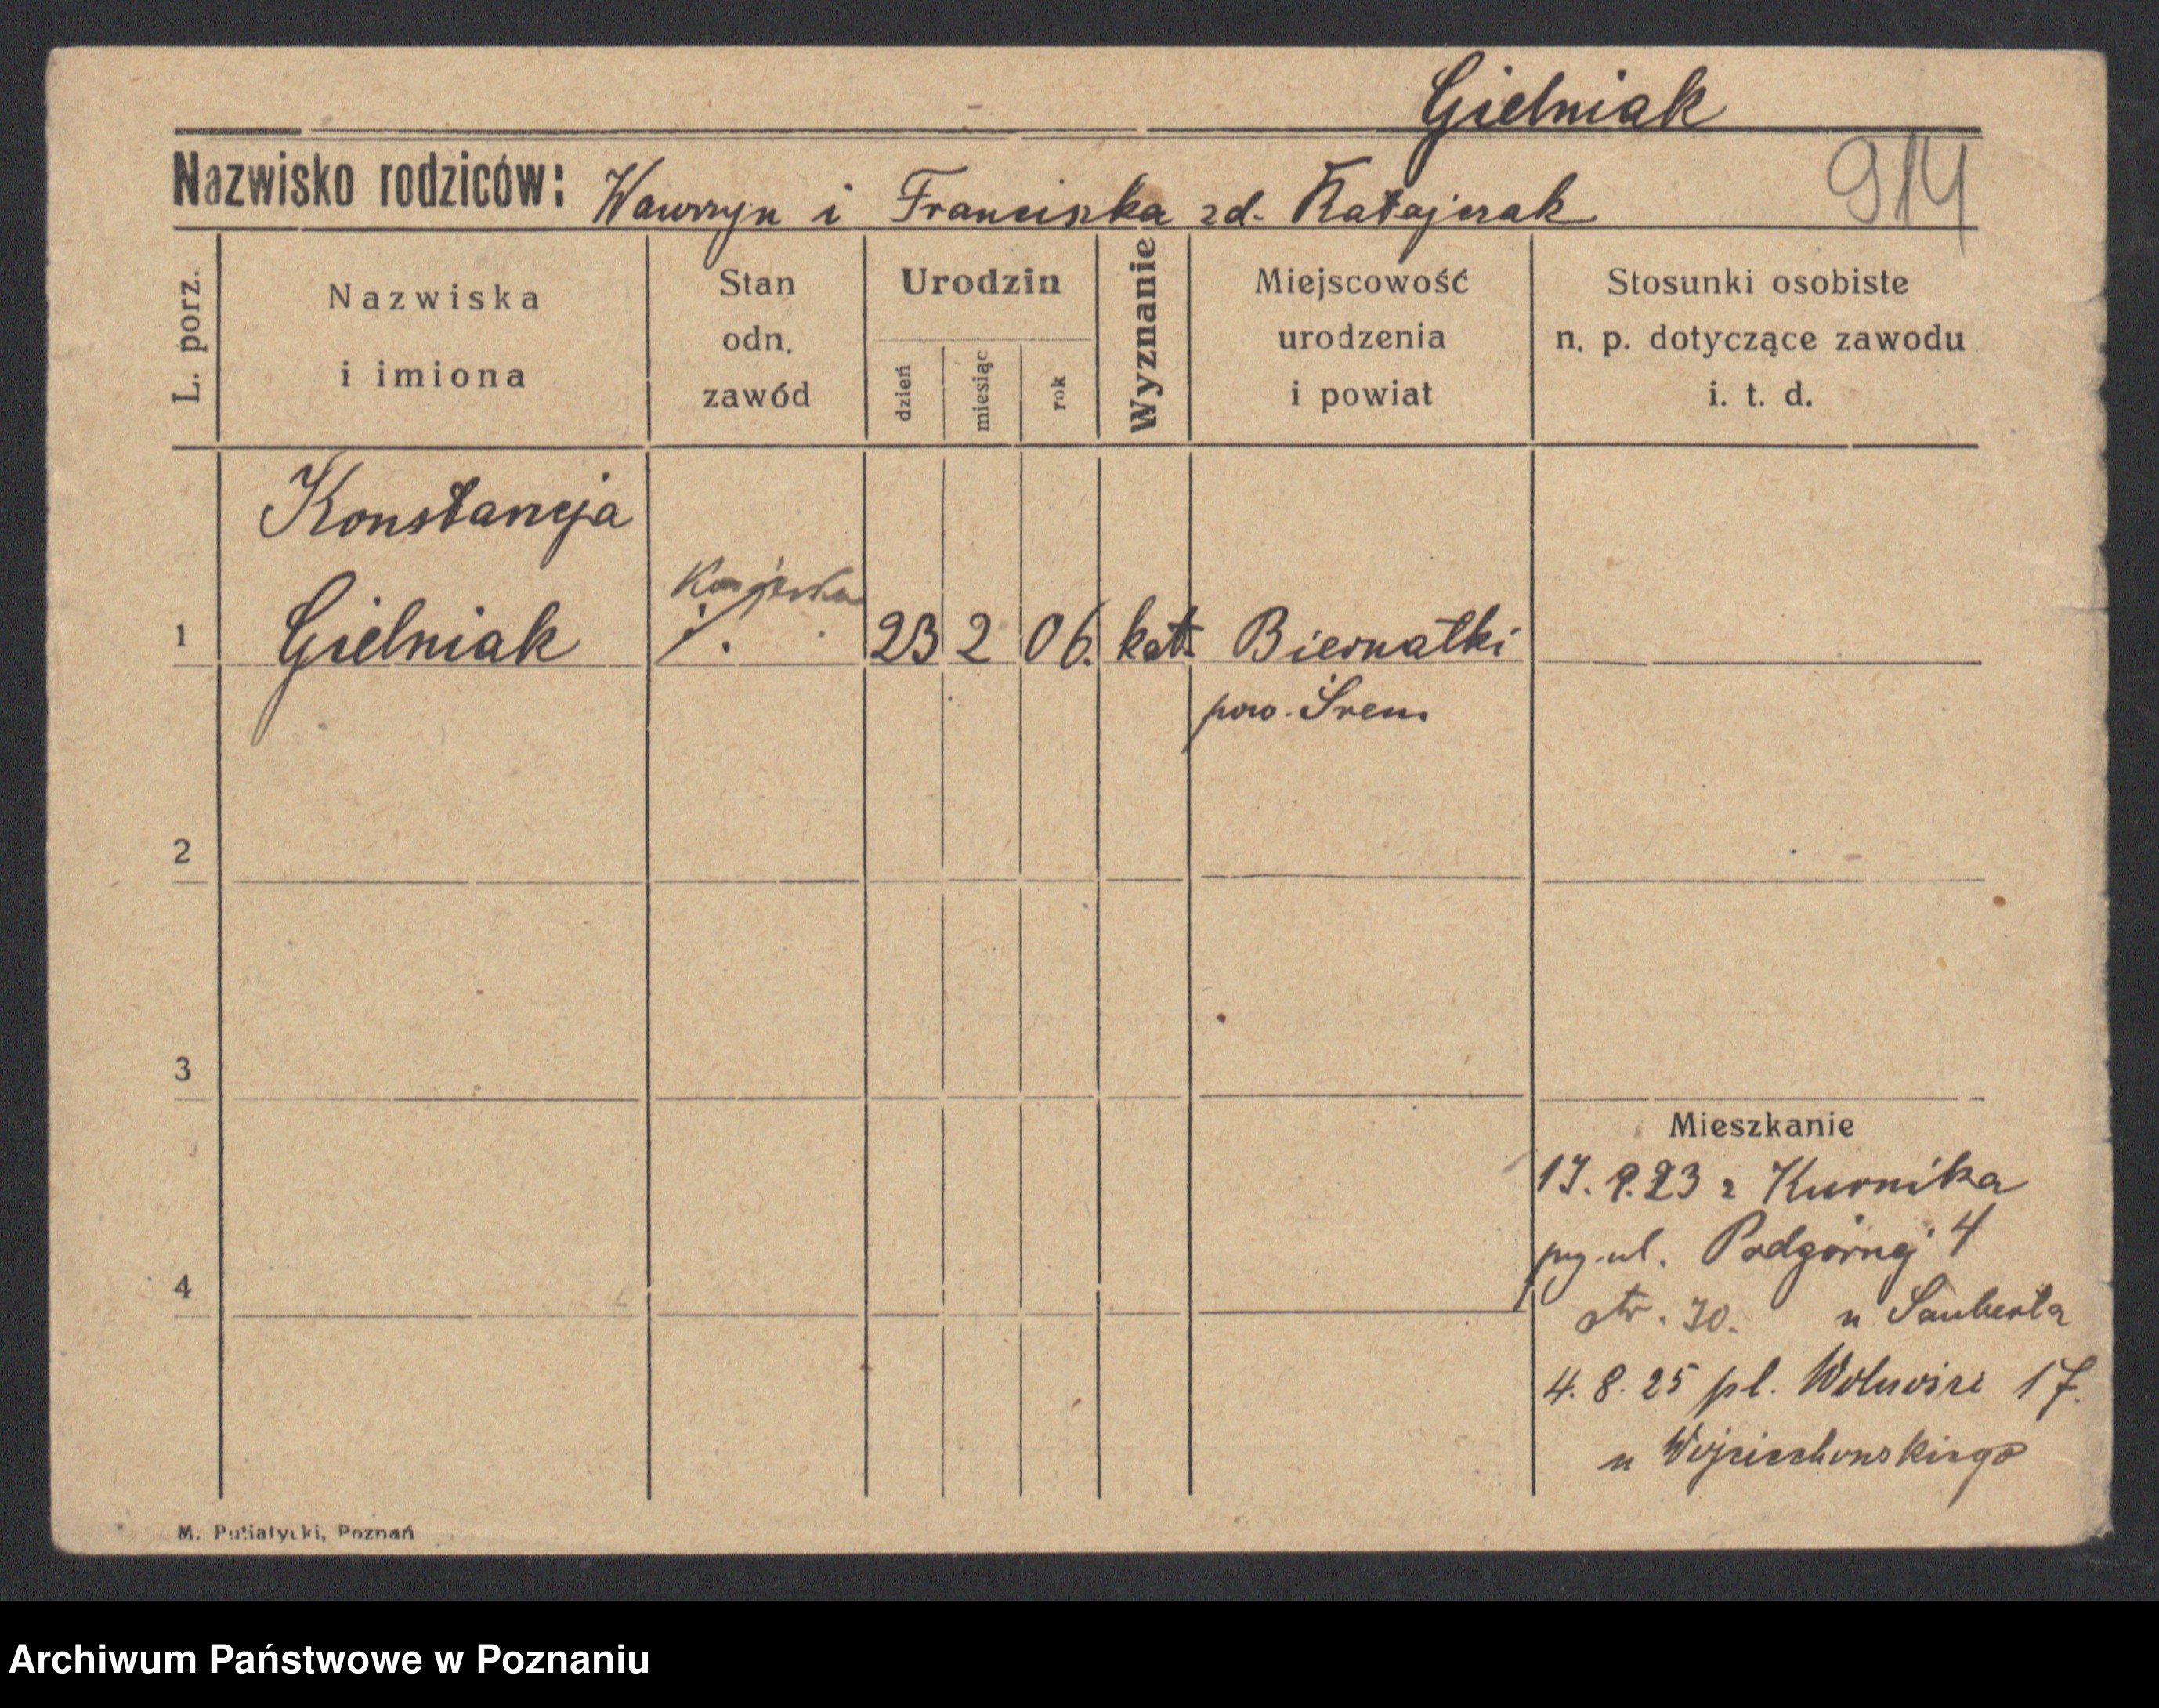 Gielniak
914
Nazwisko rodziców: Wawrzyn i Franciszka zd. Ratajczak
L. porz.
Nazwiska
i imiona
Stan
odn.
zawód
Urodzin
dzień
miesiąc
rok
Wyznanie
Miejscowość
urodzenia
i powiat
Stosunki osobiste
n. p. dotyczące zawodu
i. t. d.
Konstancja
1 Gielniak ./. 23 2 06. kat. Biernatki
pow. Śrem
2
3
4
Mieszkanie
17. 9. 23 z Kurnika
przy ul. Podgórnej 4
str. 30. u Sauberta
4. 8. 25 pl. Wolności 17.
u Wojciechowskiego
M. Putiatycki, Poznań
Archiwum Państwowe w Poznaniu